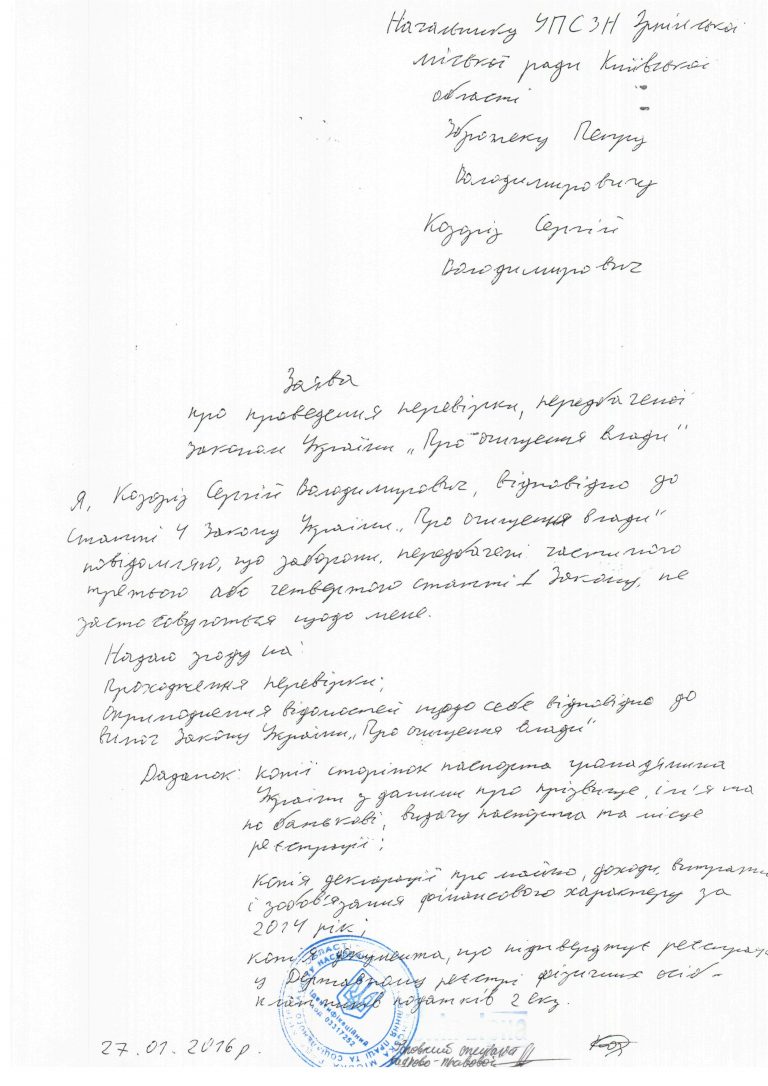 Начальнику УПСЗН Ірпінської
міської ради Київської
області
Зброжеку Петру
Володимировичу
Коздріз Сергій
Володимирович
Заява
про проведення перевірки, передбаченої
Законом України „Про очищення влади"
Я, Коздріз Сергій Володимирович, відповідно до
статті 4 Закону України „Про очищення влади"
повідомляю, що заборони, передбачені частиною
третьою або четвертою статті 1 Закону, не
застосовуються щодо мене.
Надаю згоду на:
проходження перевірки;
оприлюднення відомостей щодо себе відповідно до
вимог Закону України „Про очищення влади"
Додаток: копії сторінок паспорта громадянина
України з даними про прізвище, ім'я та
по батькові, видачу паспорта та місце
реєстрації;
копія декларації про майно, доходи, витрати
і зобов'язання фінансового характеру за
2014 рік;
копія документа, що підтверджує реєстрацію
у Державному реєстрі фізичних осіб-
платників податків 2 екз.
Ідентифікаційний
код 03317252
27.01.2016 р.
Головний спеціаліст
кадрово-правової